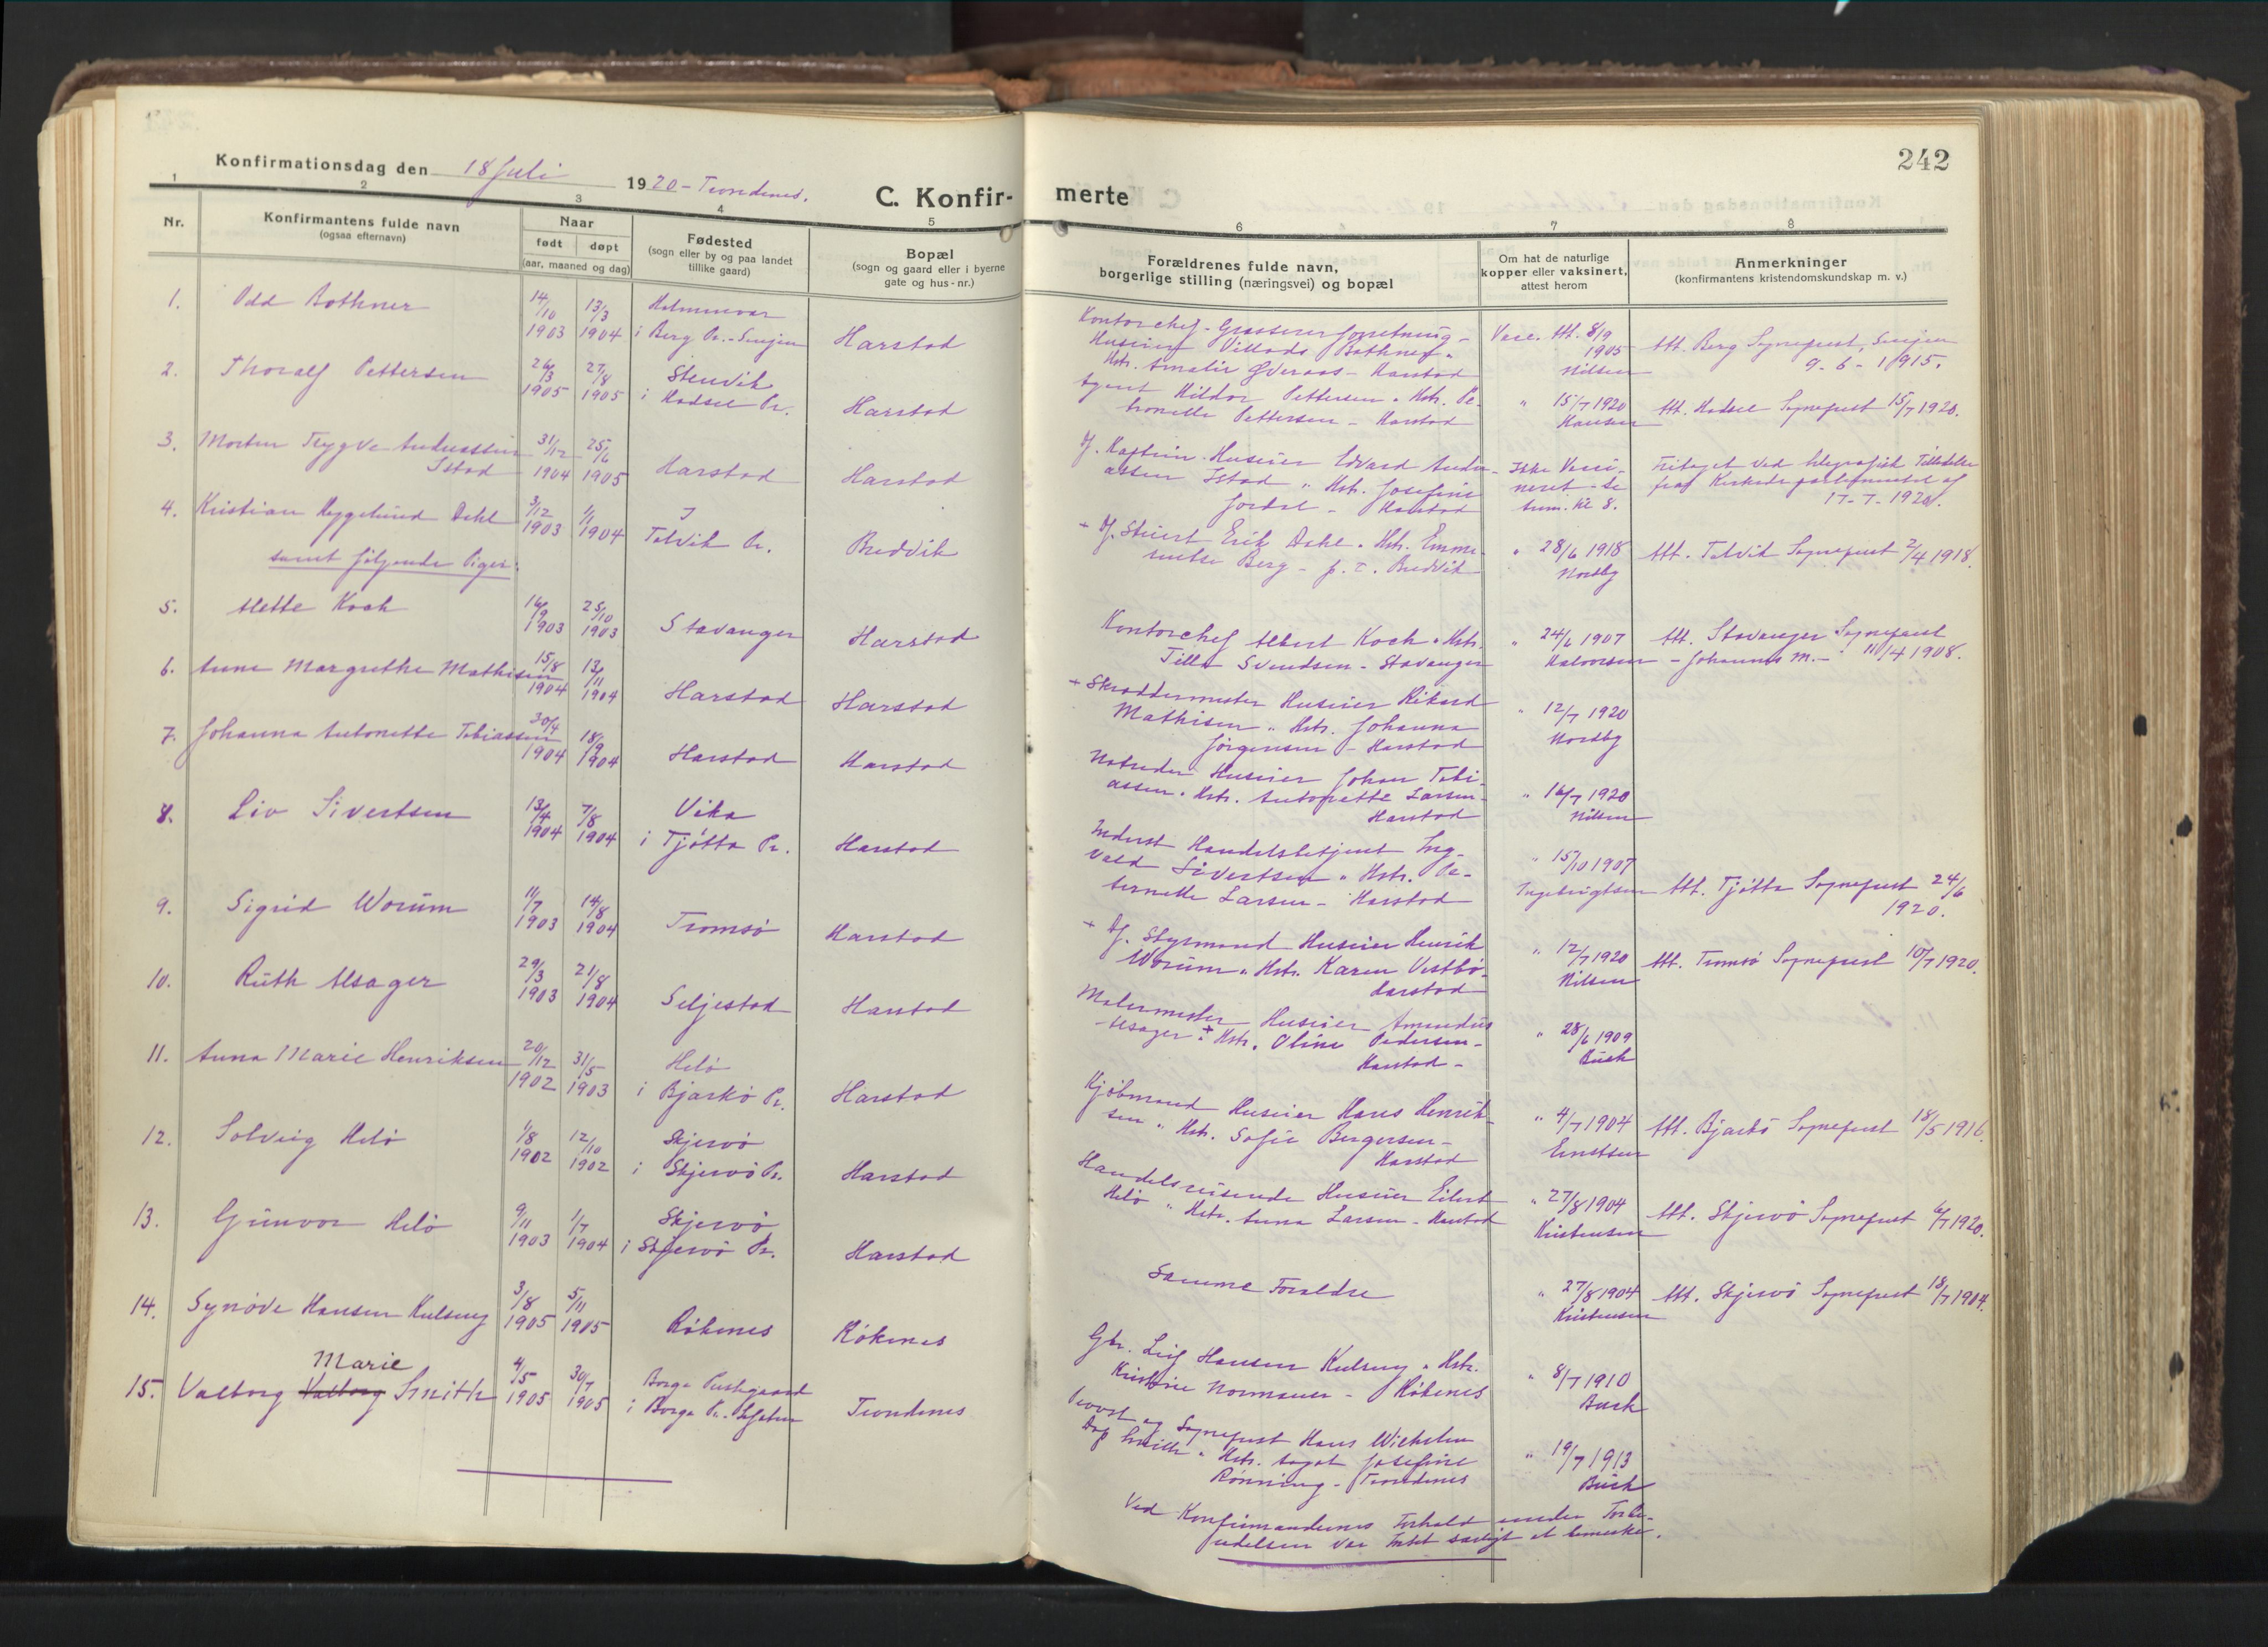 Konfirmationsdag den 18 Juli 1920 - Trondenes.
C. Konfir-
1
2
3
4
5
Nr.
Konfirmantens fulde navn
(ogsaa efternavn)
Naar
født
døpt
(aar, maaned og dag)
Fødested
(sogn eller by og paa landet
tillike gaard)
Bopæl
(sogn og gaard eller i byerne
gate og hus-nr.)
1. Odd Bothner 14/10 1903 13/3 1904
i Berg Pr. - Senjen Harstad
2. Thoralf Pettersen 26/3 1905 27/8 1905 Stenvik
i Hadsel Pr. Harstad
3. Morten Trygve Andreassen
Istad 31/12 1904 25/6 1905 Harstad Harstad
4. Kristian Hyggelund Dahl 3/12 1903 1/1 1904 I
Talvik Pr. Bredvik
samt følgende Piger:
5. Mette Koch 16/9 1903 25/10 1903 Stavanger Harstad
6. Anna Margrethe Mathisen 15/8 1904 13/11 1904 Harstad Harstad
7. Johanna Antonette Tobiassen 30/4 1904 18/9 1904 Harstad Harstad
8. Liv Sivertsen 13/4 1904 7/8 1904 Vika
i Tjøtta Pr. Harstad
9. Sigrid Worum 11/7 1903 14/8 1904 Tromsø Harstad
10. Ruth Alsager 29/3 1903 21/8 1904 Seljestad Harstad
11. Anna Marie Henriksen 20/12 1902 31/5 1903 Helø
i Bjarkø Pr. Harstad
12. Solveig Helø 1/8 1902 12/10 1902 Skjervø
i Skjervø Pr. Harstad
13. Gunvor Helø 9/11 1903 1/7 1904 Skjervø
i Skjervø Pr. Harstad
14. Synøve Hansen Kulseng 3/8 1905 5/11 1905 Røkenes Røkenes
Marie
15. Valborg Valborg Smith 4/5 1905 30/7 1905 Borge Prestegaard
i Borge Pr. - Lofoten Trondenes
242
merte
6
7
8
Forældrenes fulde navn,
borgerlige stilling (næringsvei) og bopæl
Om hat de naturlige
kopper eller vaksinert,
attest herom
Anmerkninger
(konfirmantens kristendomskundskap m. v.)
Kontorchef - Grosserer forretning -
Huseier Villads Bothner &
Hstr. Amalie Øveraas - Harstad
Vacc. Att. 8/9
1905
Nilsen
Att. Berg Sogneprest, Senjen
9 - 6 - 1915.
Agent Hildor Pettersen & Hstr. Pe-
tronelle Pettersen - Harstad
" 15/7 1920
Hansen
Att. Hadsel Sogneprest 15/7 1920.
f. Kaptein Huseier Edvard Andre-
assen Istad & Hstr. Josefine
Jordal - Harstad
Ikke Vacci-
neret - Se
Anm. Kl 8.
Fritaget ved telegrafisk Tilladelse
fra Kirkedepartementet af
17 - 7 - 1920.
+ f. Stuert Erik Dahl & Hstr. Emme-
rentse Berg - p. t. Bredvik
" 28/6 1918
Nordby
Att. Talvik Sogneprest 2/4 1918.
Kontorchef Albert Koch & Hstr.
Tilla Svendsen - Stavanger
" 24/6 1907
Halvorsen
Att. Stavanger Sogneprest
- Johannes M. - 11/4 1908.
+ Skræddermester Huseier Rikard
Mathisen & Hstr. Johanna
Jørgensen - Harstad
" 12/7 1920
Nordby
Notreder Huseier Johan Tobi-
assen & Hstr. Antonette Larsen -
Harstad
" 16/7 1920
Nilsen
Inderst Handelsbetjent Ing-
vald Sivertsen & Hstr. Pe-
ternelle Larsen - Harstad
" 15/10 1907
Ingebrigtsen
Att. Tjøtta Sogneprest 24/6
1920.
+ f. Styrmand Huseier Henrik
Worum & Hstr. Karen Vestbø -
Harstad
" 12/7 1920
Nilsen
Att. Tromsø Sogneprest 10/7 1920.
Malermester Huseier Amandus
Alsager & + Hstr. Oline Pedersen -
Harstad -
" 28/6 1909
Buch
Kjøbmand Huseier Hans Henrik-
sen & Hstr. Sofie Bergersen -
Harstad
" 4/7 1904
Ernstsen
Att. Bjarkø Sogneprest 18/5 1916.
Handelsreisende Huseier Eilert
Helø & Hstr. Anna Larsen - Harstad
" 27/8 1904
Kristensen
Att. Skjervø Sogneprest 6/7 1920.
Samme Foreldre
" 27/8 1904
Kristensen
Att. Skjervø Sogneprest 18/7 1904.
Gbr. Leif Hansen Kulseng & Hstr.
Kristine Normann - Røkenes
" 8/7 1910
Buch
Provst og Sogneprest Hans Wilhelm
Dop Smith & Hstr. Aagot Josefine
Rønning - Trondenes
" 19/7 1913
Buch
Ved Konfirmandernes Forhold under Forbe-
redelsen var Intet særligt at bemerke.